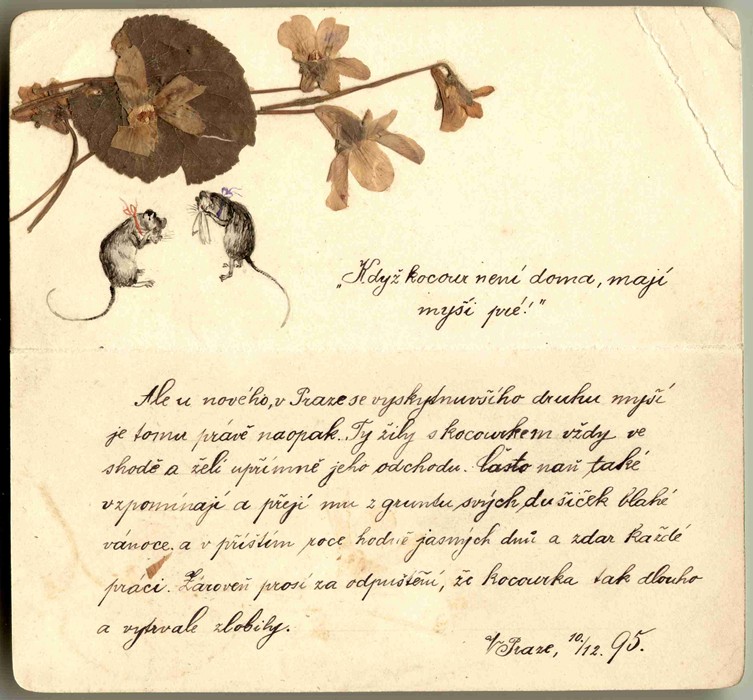 „Když kocour není doma, mají
myši pré!"
Ale u nového, v Praze se vyskytnuvšího druhu myší
je tomu právě naopak. Ty žily s kocourkem vždy ve
shodě a želí upřímně jeho odchodu. Často naň také
vzpomínají a přejí mu z gruntu svých dušiček blahé
vánoce a v příštím roce hodně jasných dnů a zdar každé
práci. Zároveň prosí za odpuštění, že kocourka tak dlouho
a vytrvale zlobily.
V Praze, 10/12. 95.